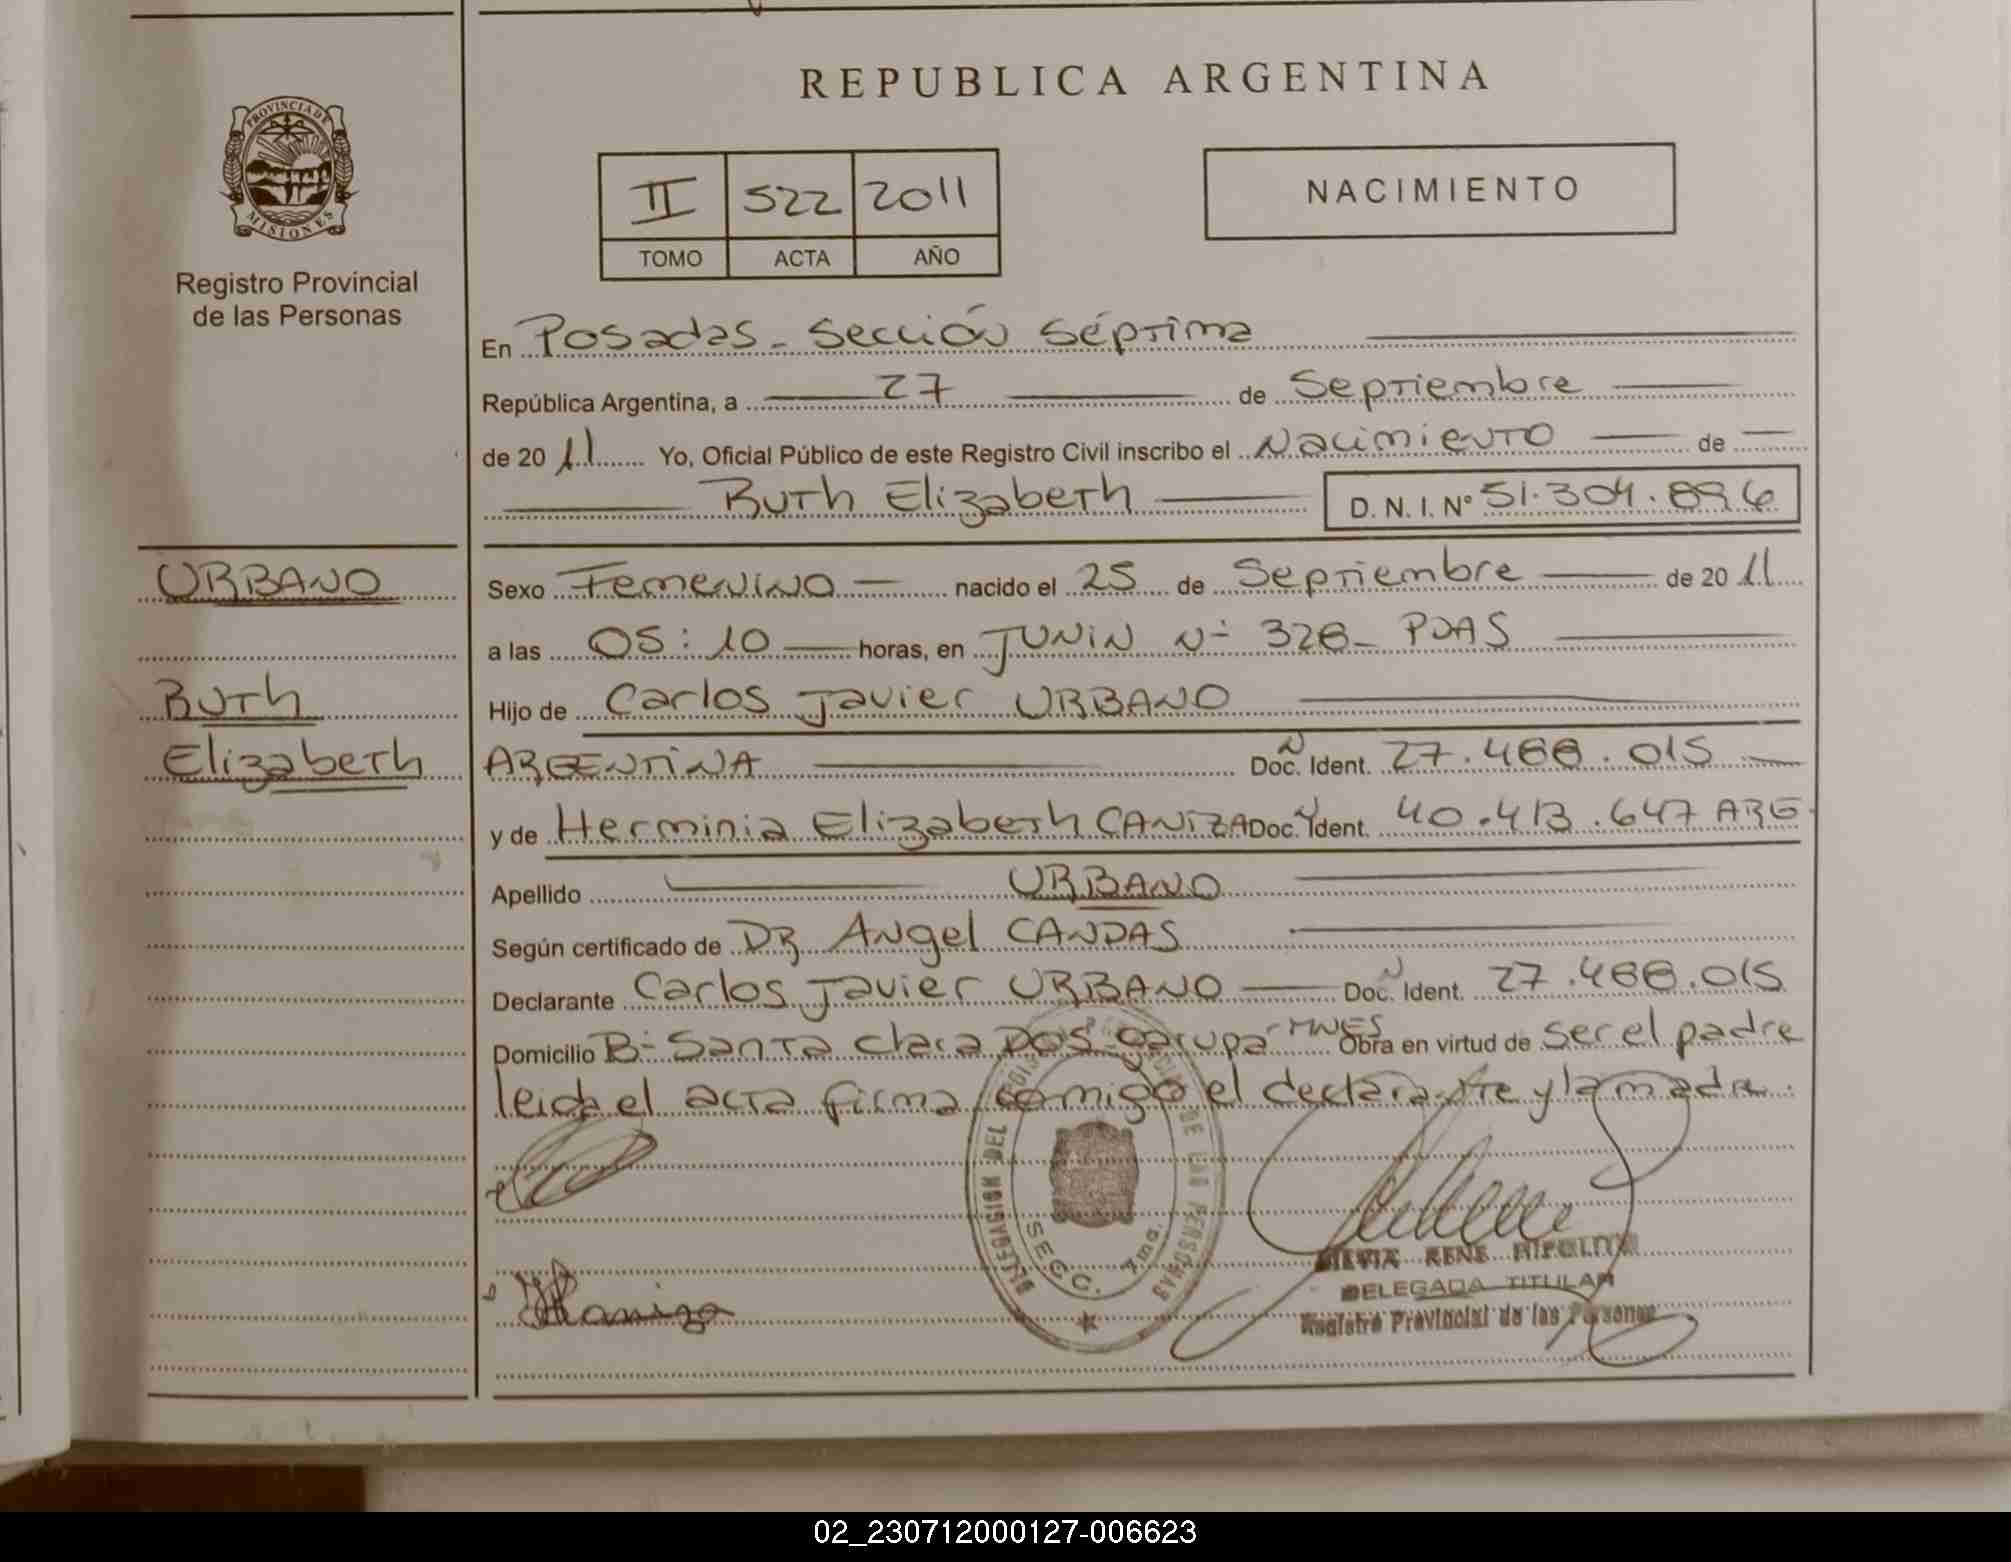 REPUBLICA ARGENTINA
PROVINCIA DE
MISIONES
Registro Provincial
de las Personas
II 522 2011
TOMO ACTA AÑO
NACIMIENTO
En Posadas - Sección Séptima
República Argentina, a 27 de Septiembre
de 2011 Yo, Oficial Público de este Registro Civil inscribo el Nacimiento de
Ruth Elizabeth D. N. I. Nº 51.304.896
URBANO
Ruth
Elizabeth
Sexo Femenino nacido el 25 de Septiembre de 2011
a las 05:10 horas, en JUNIN Nº 328 - PDAS
Hijo de Carlos Javier URBANO
ARGENTINA Doc. Ident. 27.488.015
y de Herminia Elizabeth CANIZA Doc. Ident. 40.413.647 ARG.
Apellido URBANO
Según certificado de DR Angel CANDAS
Declarante Carlos Javier URBANO Doc. Ident. 27.488.015
Domicilio Bº Santa Clara Dos - Garupá MNES Obra en virtud de ser el padre
leida el acta firma conmigo el declarante y la madre.
DELEGACION DEL REGISTRO PROVINCIAL DE LAS PERSONAS
SECC. 7ma.
HCaniza
RENE HIPOLITO
DELEGADA TITULAR
Registro Provincial de las Personas
02_230712000127-006623